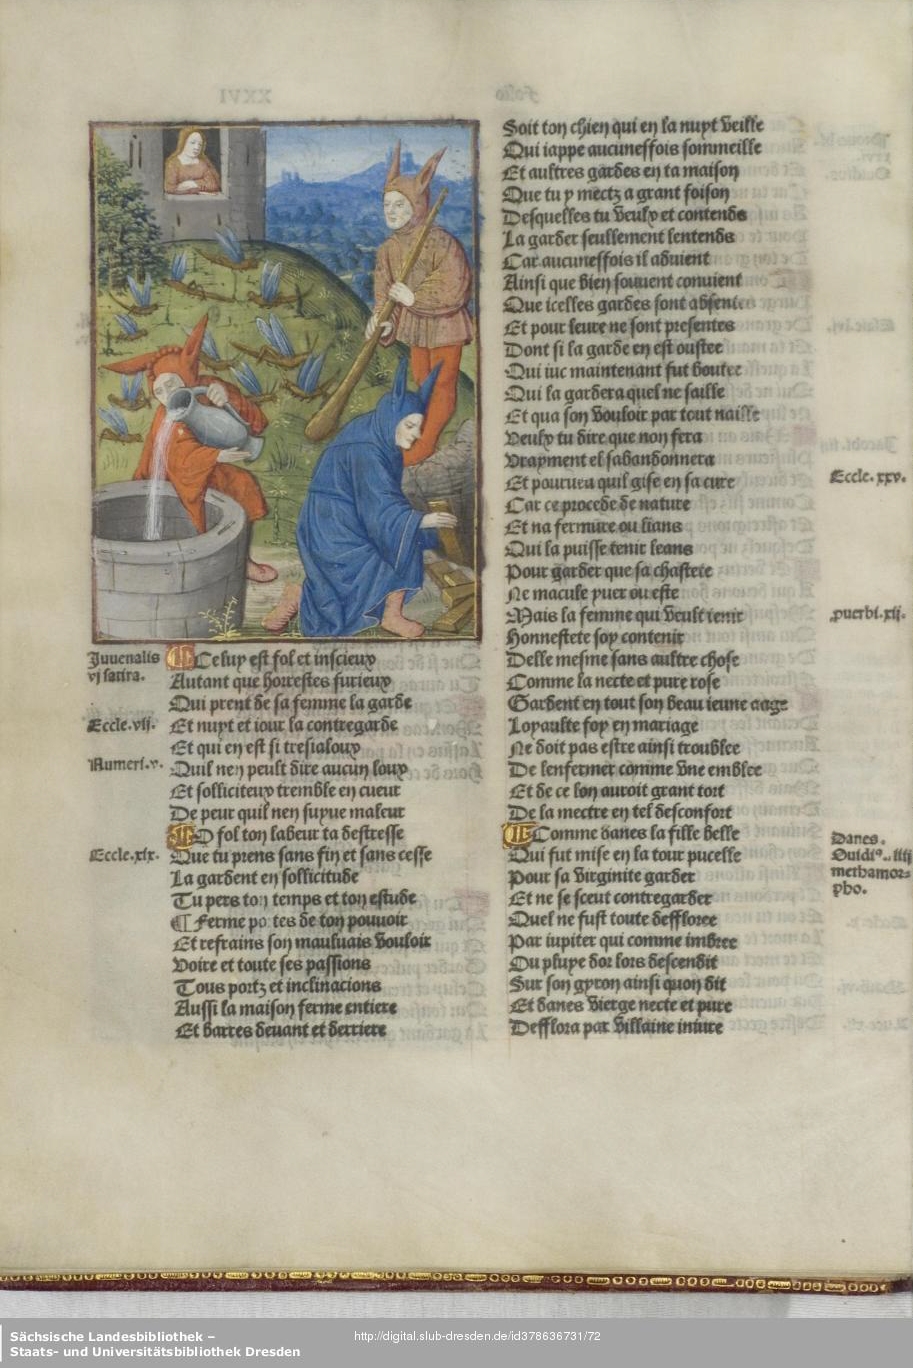 Juvenalis
vj satira.
Eccle. vij.
Numeri. v.
Eccle. xix.
Celuy est fol et inscieux
Autant que horrestes furieux
Qui prent de sa femme la garde
Et nuyt et iour la contregarde
Et qui en est si tresialoux
Quil nen peult dire aucun loux
Et solliciteux tremble en cueur
De peur quil nen suyue maleur
O fol ton labeur ta destresse
Que tu prens sans fin et sans cesse
La gardent en sollicitude
Tu pers ton temps et ton estude
¶ Ferme portes de ton pouuoir
Et refrains son mauluais vouloir
Voire et toute ses passions
Tous portz et inclinacions
Aussi la maison ferme entiere
Et barres deuant et derriere
Soit ton chien qui en la nuyt veille
Qui iappe aucuneffois sommeille
Et aultres gardes en ta maison
Que tu y mectz a grant foison
Desquelles tu veulx et contends
La garder seullement lentends
Car aucuneffois il aduient
Ainsi que bien souuent conuient
Que icelles gardes sont absentes
Et pour leure ne sont presentes
Dont si la garde en est oustee
Qui iuc maintenant fut boutee
Qui la gardera quel ne faille
Et qua son vouloir par tout naille
Veulx tu dire que non fera
Vrayment el sabandonnera
Et pourueu quil gise en sa cure
Car ce procede de nature
Et na fermure ou lians
Qui la puisse tenir leans
Pour garder que sa chastete
Ne macule yuer ou este
Mais la femme qui veult tenir
Honnestete soy contenir
Delle mesme sans aultre chose
Comme la necte et pure rose
Gardent en tout son beau ieune aage
Loyaulte foy en mariage
Ne doit pas estre ainsi troublee
De lenfermer comme vne emblee
Et de ce lon auroit grant tort
De la mectre en tel desconfort
Comme danes la fille belle
Qui fut mise en la tour pucelle
Pour sa virginite garder
Et ne se sceut contregarder
Quel ne fust toute deffloree
Par iupiter qui comme imbree
Ou pluye dor lors descendit
Sur son gyron ainsi quon dit
Et danes vierge necte et pure
Defflora par villaine iniure
Eccle. xxv.
puerbi. xij.
Danes.
Ouidiꝰ.. iiij
methamor-
pho.
Sächsische Landesbibliothek –
Staats- und Universitätsbibliothek Dresden
http://digital.slub-dresden.de/id378636731/72